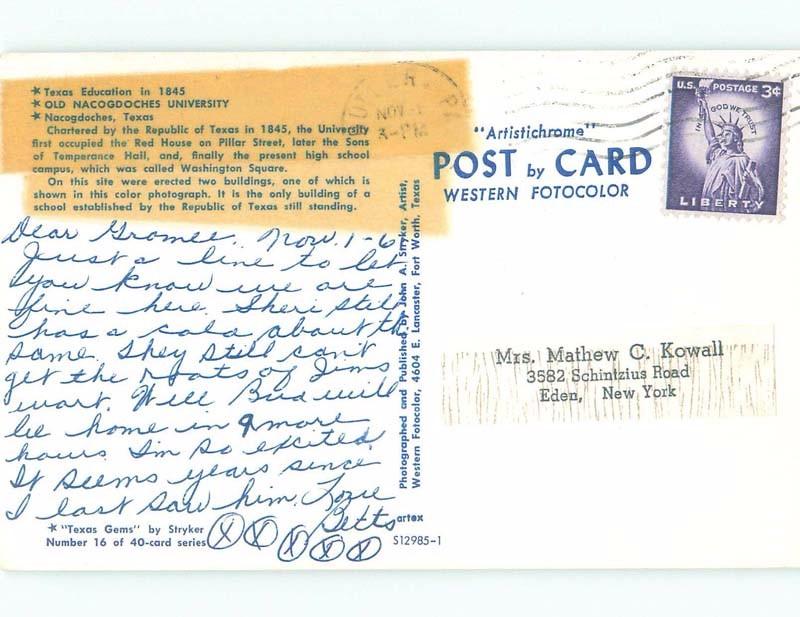 ★ Texas Education in 1845
★ OLD NACOGDOCHES UNIVERSITY
★ Nacogdoches, Texas
Chartered by the Republic of Texas in 1845, the University
first occupied the Red House on Pillar Street, later the Sons
of Temperance Hall, and, finally the present high school
campus, which was called Washington Square.
On this site were erected two buildings, one of which is
shown in this color photograph. It is the only building of a
school established by the Republic of Texas still standing.
Dear Gramee. Nov. 1-6
Just a line to let
you know we are
fine here. Sheri still
has a cold about th
same. They still can't
get the roots of Jims
wart. Well Bud will
be home in 9 more
hours I'm so excited.
It seems years since
I last saw him. Love
Betts
★ "Texas Gems" by Stryker
Number 16 of 40-card series
Photographed and Published by John A. Stryker, Artist,
Western Fotocolor, 4604 E. Lancaster, Fort Worth, Texas
artex
S12985-1
NOV
PM
"Artistichrome"
POST by CARD
WESTERN FOTOCOLOR
U.S. POSTAGE 3¢
IN GOD WE TRUST
LIBERTY
Mrs. Mathew C. Kowall
3582 Schintzius Road
Eden, New York